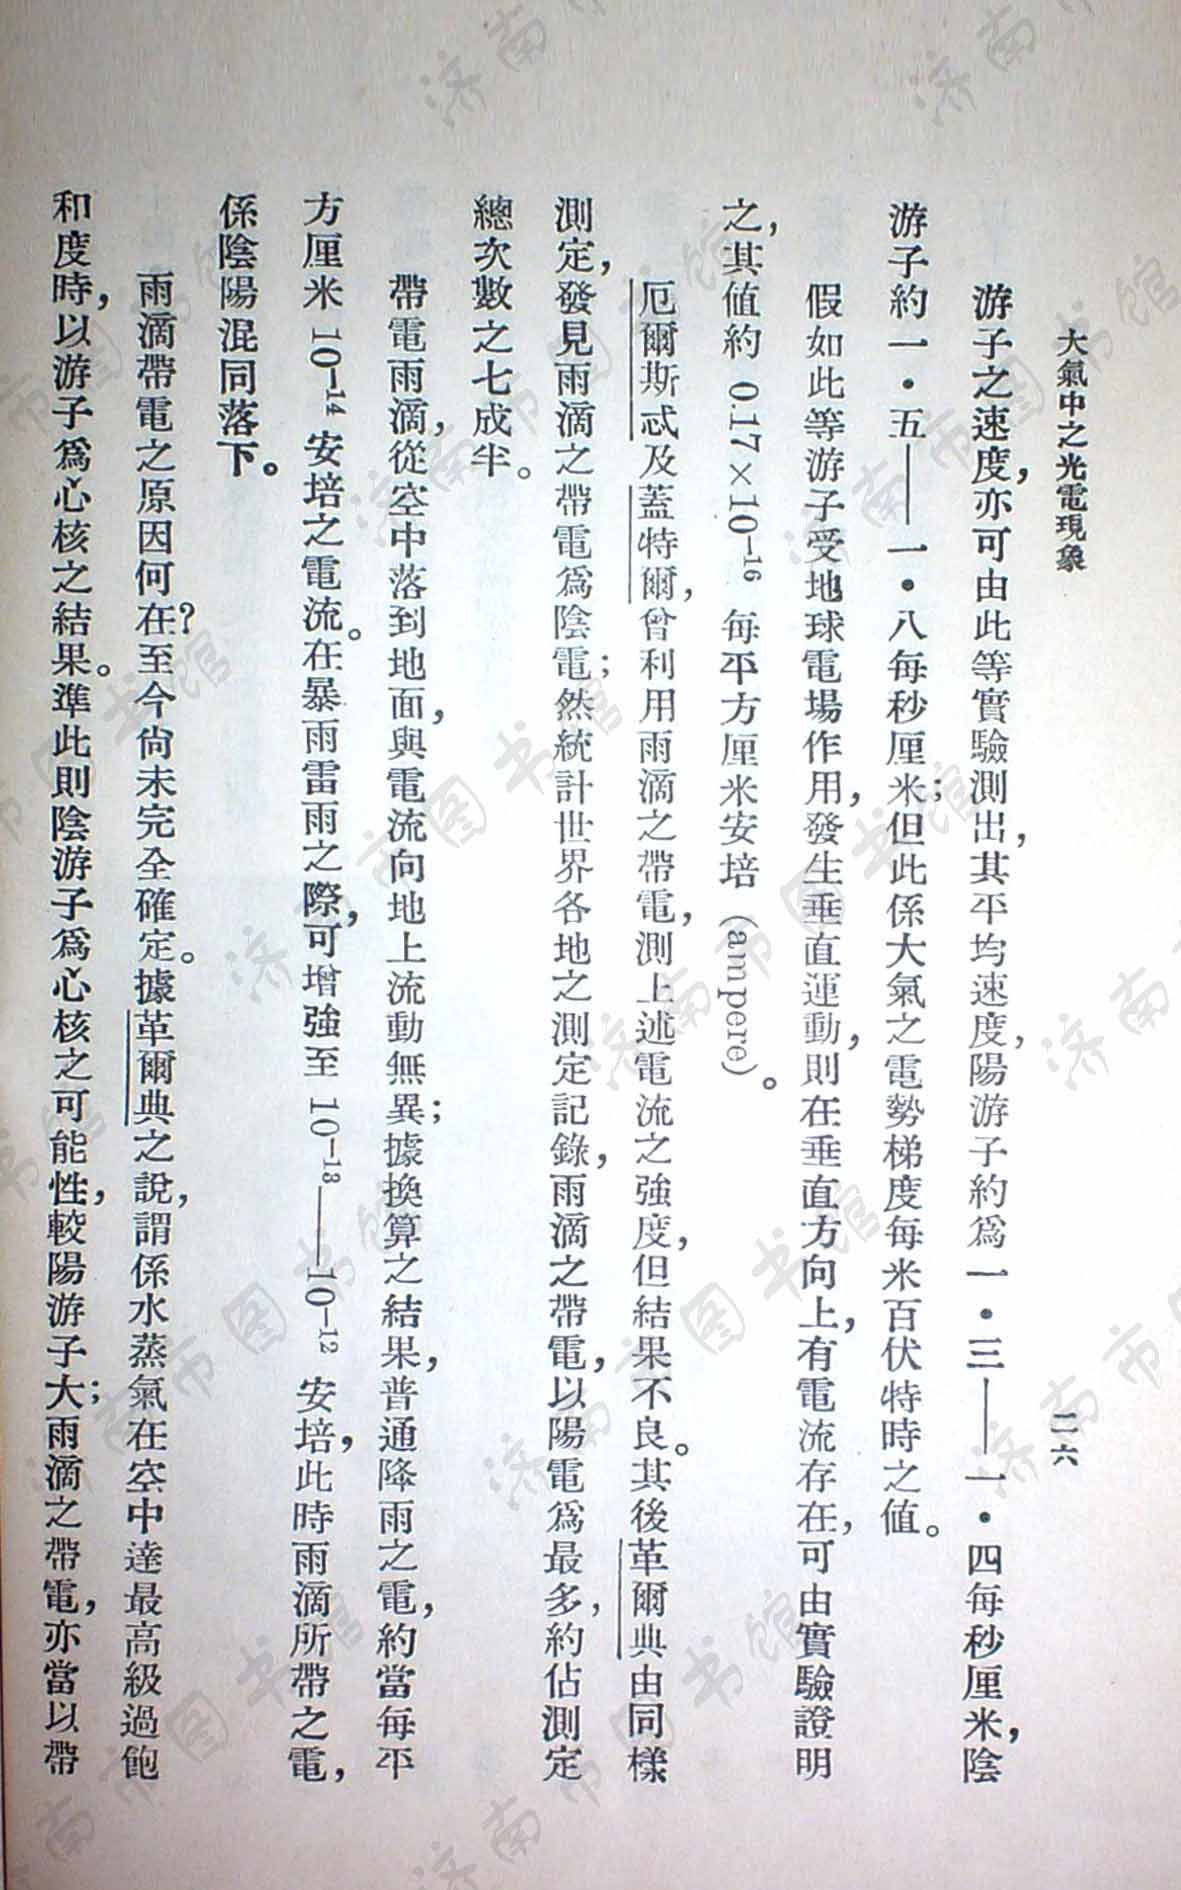 大氣中之光電現象
二六
游子之速度,亦可由此等實驗測出,其平均速度,陽游子約爲一・三——一・四每秒厘米,陰
游子約一・五——一・八每秒厘米;但此係大氣之電勢梯度每米百伏特時之值。
假如此等游子受地球電場作用,發生垂直運動,則在垂直方向上,有電流存在,可由實驗證明
之,其值約 0.17×10⁻¹⁶ 每平方厘米安培 (ampere)。
厄爾斯忒及蓋特爾,曾利用雨滴之帶電,測上述電流之強度,但結果不良。其後革爾典由同樣
測定,發見雨滴之帶電爲陰電;然統計世界各地之測定記錄,雨滴之帶電,以陽電爲最多,約佔測定
總次數之七成半。
帶電雨滴,從空中落到地面,與電流向地上流動無異;據換算之結果,普通降雨之電,約當每平
方厘米 10⁻¹⁴ 安培之電流。在暴雨雷雨之際,可增強至 10⁻¹³——10⁻¹² 安培,此時雨滴所帶之電,
係陰陽混同落下。
雨滴帶電之原因何在?至今尙未完全確定。據革爾典之說,謂係水蒸氣在空中達最高級過飽
和度時,以游子爲心核之結果。準此則陰游子爲心核之可能性,較陽游子大;雨滴之帶電,亦當以帶
济南市图书馆